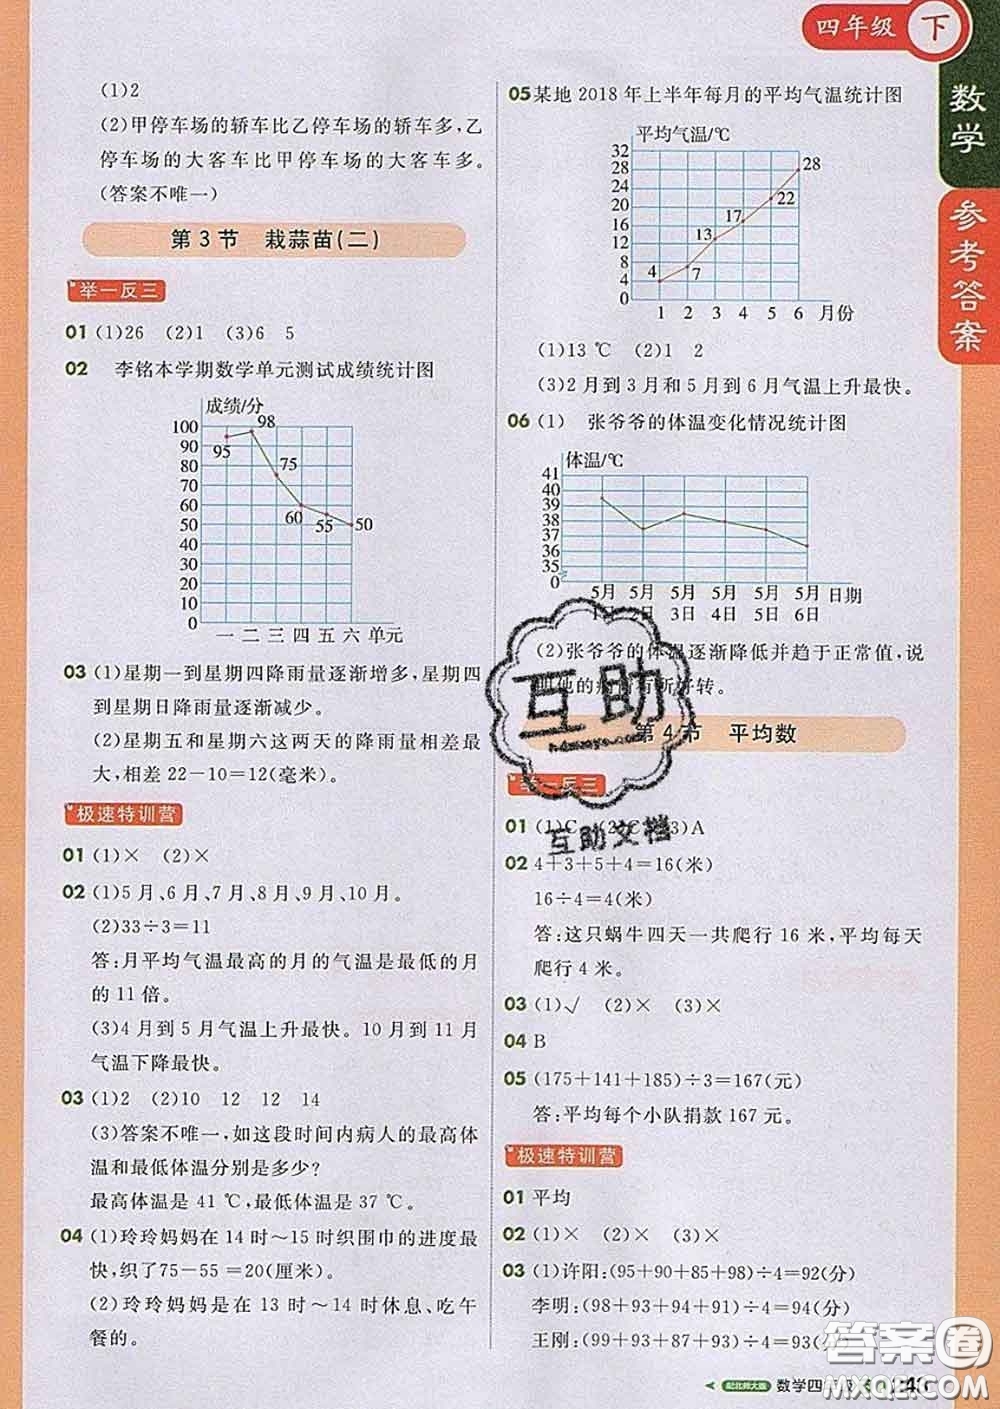 四年级 下
数学
参考答案
(1)2
(2)甲停车场的轿车比乙停车场的轿车多,乙
停车场的大客车比甲停车场的大客车多。
(答案不唯一)
第3节 栽蒜苗(二)
举一反三
01 (1)26 (2)1 (3)6 5
02 李铭本学期数学单元测试成绩统计图
成绩/分
100
90
80
70
60
50
40
30
20
10
0
95
98
75
60
55
50
一 二 三 四 五 六 单元
03 (1)星期一到星期四降雨量逐渐增多,星期四
到星期日降雨量逐渐减少。
(2)星期五和星期六这两天的降雨量相差最
大,相差22-10=12(毫米)。
极速特训营
01 (1)× (2)×
02 (1)5月、6月、7月、8月、9月、10月。
(2)33÷3=11
答:月平均气温最高的月的气温是最低的月
的11倍。
(3)4月到5月气温上升最快。10月到11月
气温下降最快。
03 (1)2 (2)10 12 12 14
(3)答案不唯一,如这段时间内病人的最高体
温和最低体温分别是多少?
最高体温是41 ℃,最低体温是37 ℃。
04 (1)玲玲妈妈在14时~15时织围巾的进度最
快,织了75-55=20(厘米)。
(2)玲玲妈妈是在13时~14时休息、吃午
餐的。
05 某地2018年上半年每月的平均气温统计图
平均气温/℃
32
28
24
20
16
12
8
4
0
4
7
13
17
22
28
1 2 3 4 5 6 月份
(1)13 ℃ (2)1 2
(3)2月到3月和5月到6月气温上升最快。
06 (1) 张爷爷的体温变化情况统计图
体温/℃
41
40
39
38
37
36
35
0
5月 5月 5月 5月 5月 5月 日期
1日 2日 3日 4日 5日 6日
(2)张爷爷的体温逐渐降低并趋于正常值,说
明他的病情有所好转。
第4节 平均数
举一反三
01 (1)C (2)C (3)A
02 4+3+5+4=16(米)
16÷4=4(米)
答:这只蜗牛四天一共爬行16米,平均每天
爬行4米。
03 (1)√ (2)× (3)×
04 B
05 (175+141+185)÷3=167(元)
答:平均每个小队捐款167元。
极速特训营
01 平均
02 (1)× (2)× (3)×
03 (1)许阳:(95+90+85+98)÷4=92(分)
李明:(98+93+94+91)÷4=94(分)
王刚:(99+93+87+93)÷4=93(分)
配北师大版 数学四年级
互助
互助文档
答案卷
MXQE.COM